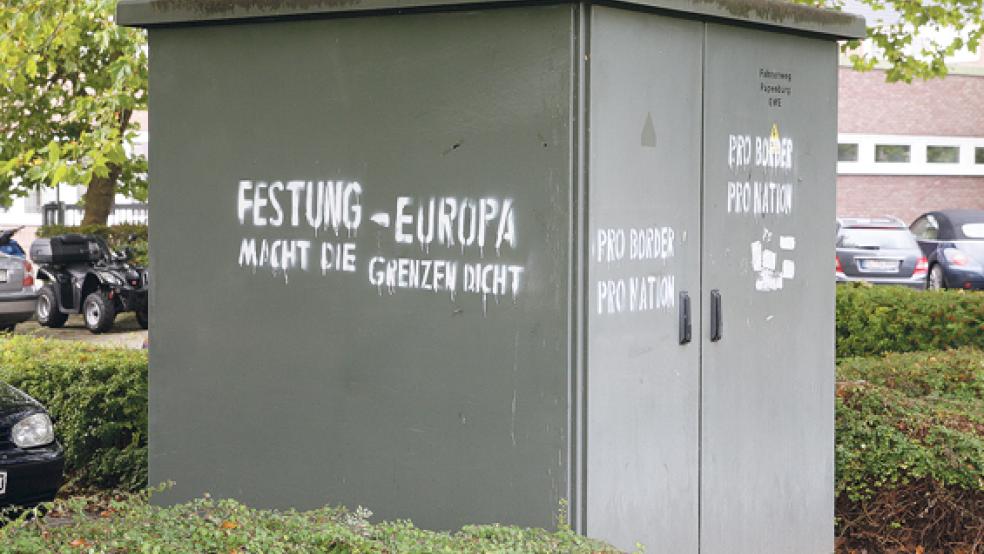 FESTUNG-EUROPA
MACHT DIE GRENZEN DICHT
PRO BORDER
PRO NATION
PRO BORDER
PRO NATION
GWE